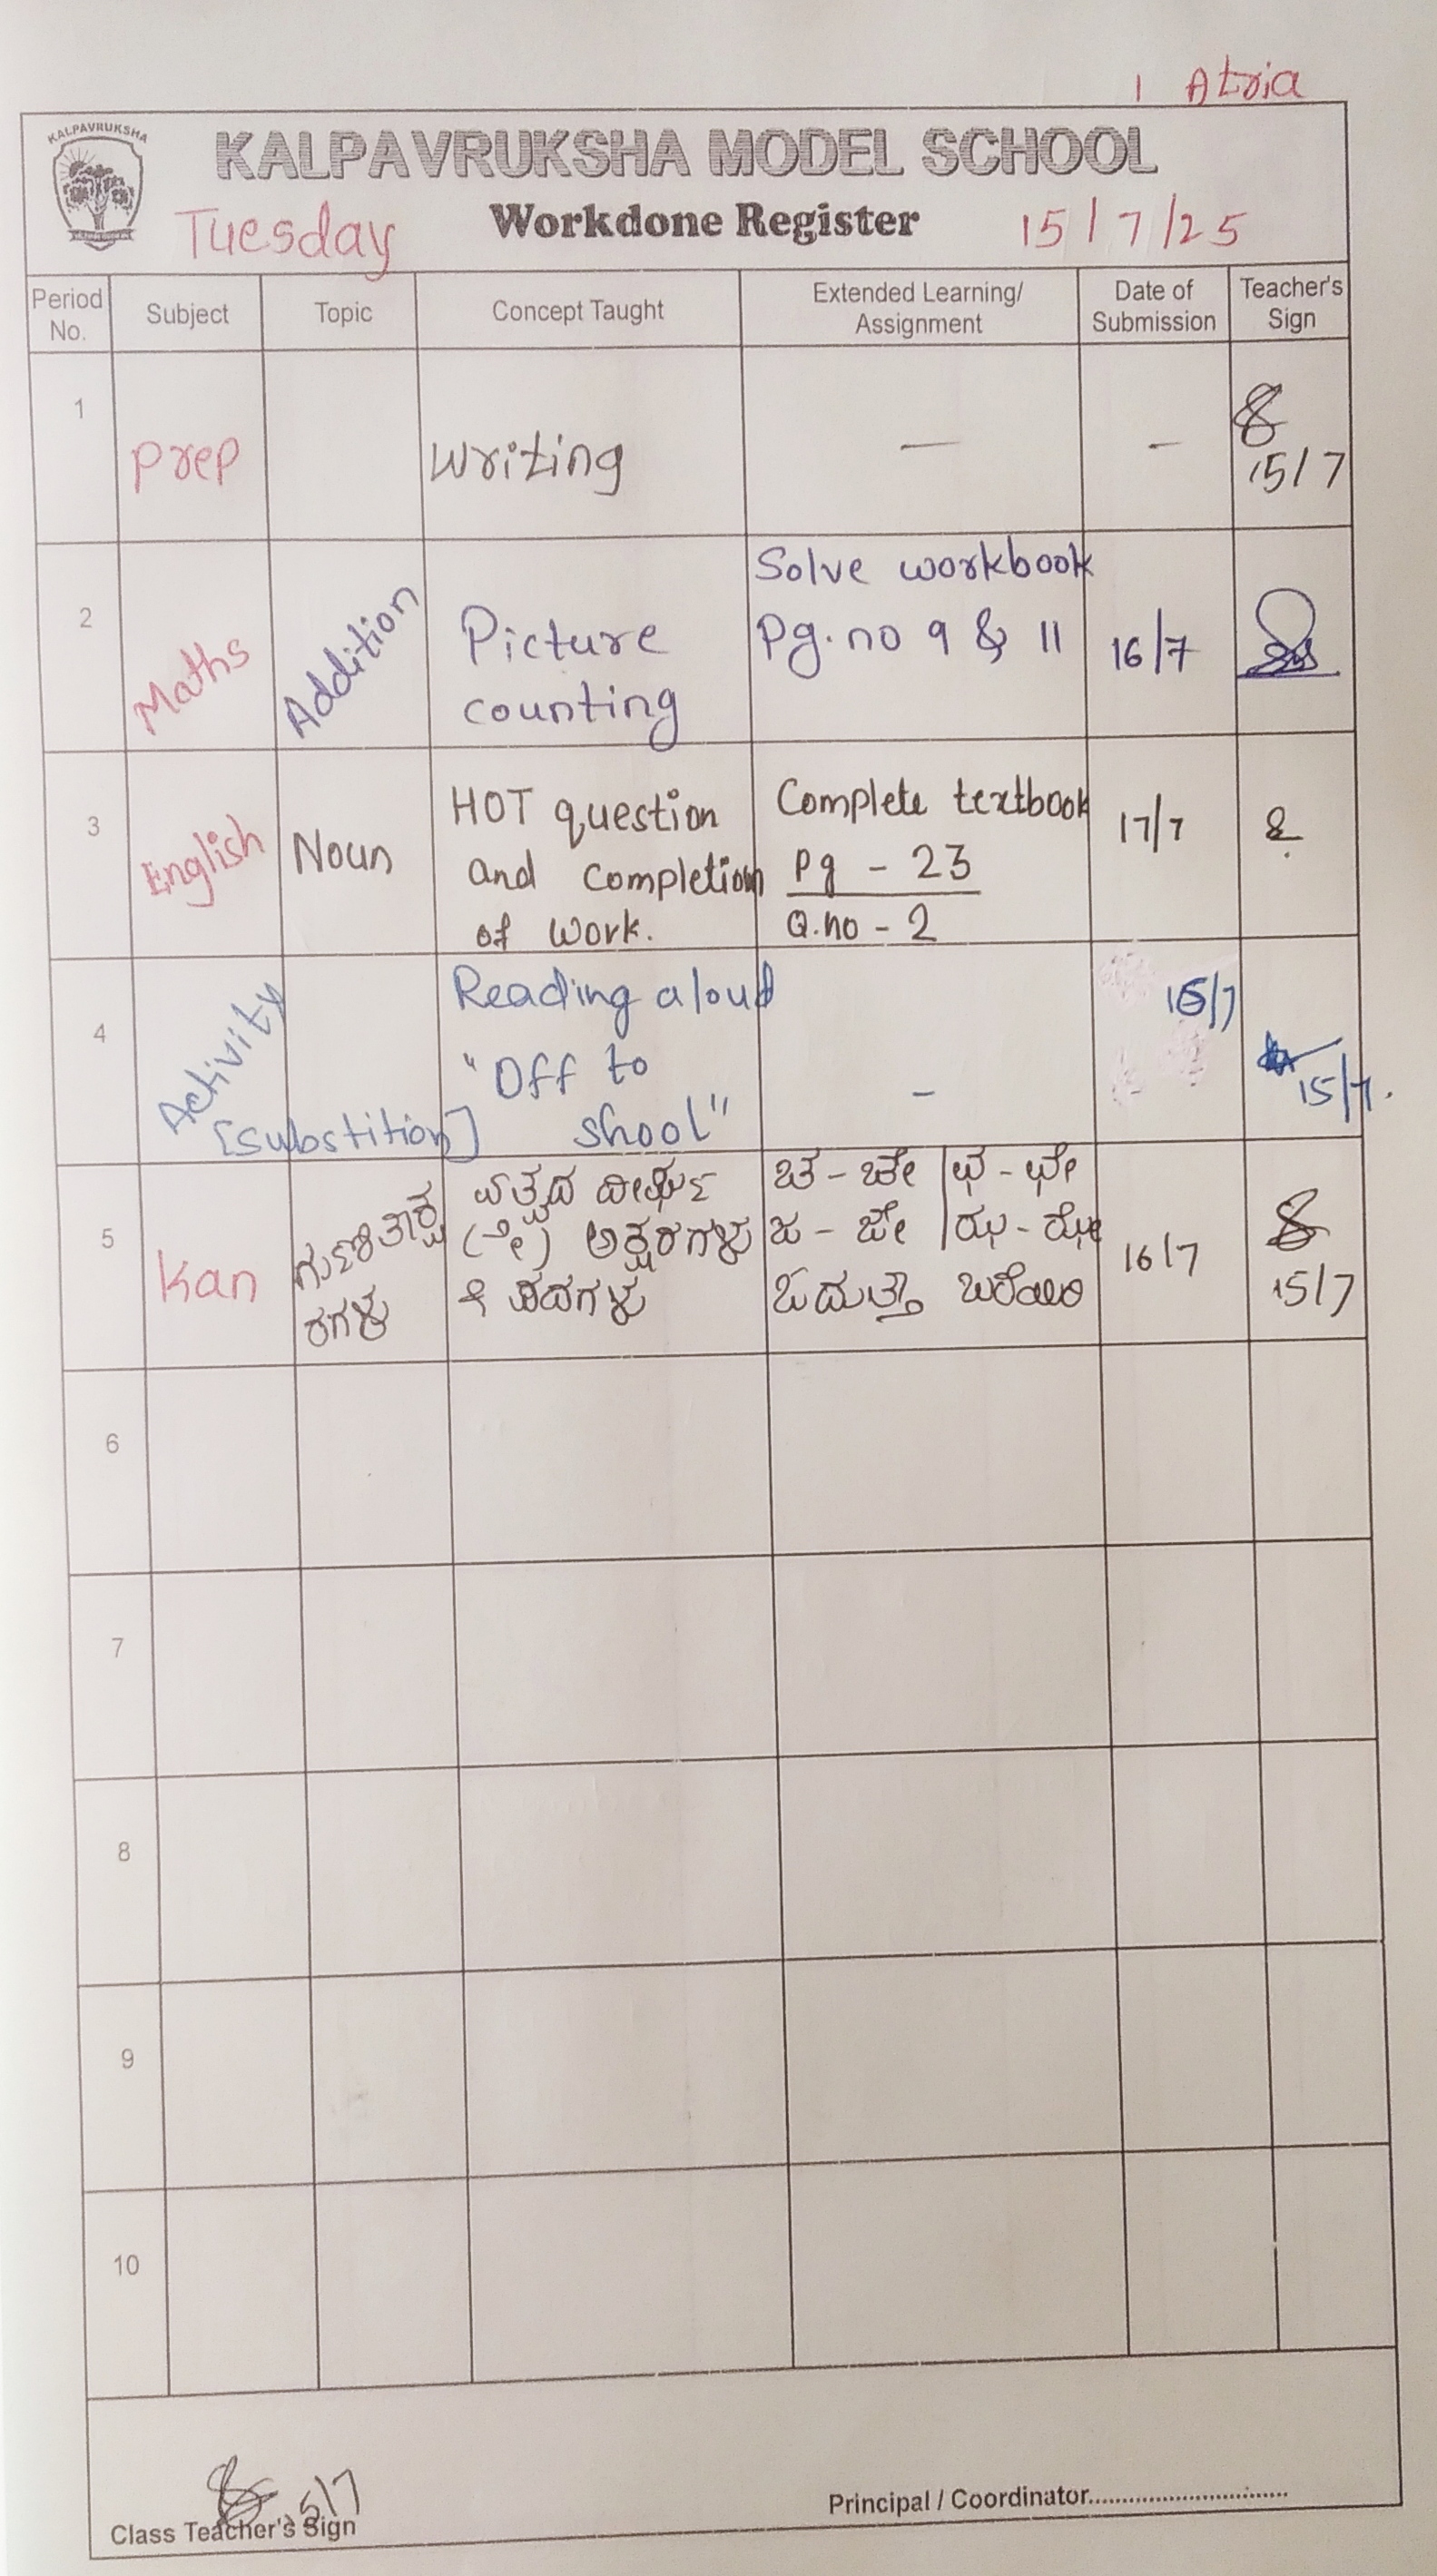 1 Atria
KALPAVRUKSHA
KALPAVRUKSHA MODEL SCHOOL
Tuesday Workdone Register 15/7/25
Period No. Subject Topic Concept Taught Extended Learning/ Assignment Date of Submission Teacher's Sign
1 prep writing — - 15/7
2 Maths Addition Picture counting Solve workbook Pg.no 9 & 11 16/7
3 English Noun HOT question and completion of work. Complete textbook Pg - 23 Q.no - 2 17/7
4 Activity [substition] Reading aloud "Off to shool" - 15/7 15/7.
5 Kan ಗುಣಿತಾಕ್ಷರಗಳು ಎತ್ವದ ದೀರ್ಘ (ೇ) ಅಕ್ಷರಗಳು ಪದಗಳು ಚ - ಚೇ | ಛ - ಛೇ ಜ - ಜೇ | ಝ - ಝೇ ಓದುತ್ತಾ ಬರೆಯಿರಿ 16/7 15/7
6
7
8
9
10
15/7
Class Teacher's Sign Principal / Coordinator..............................